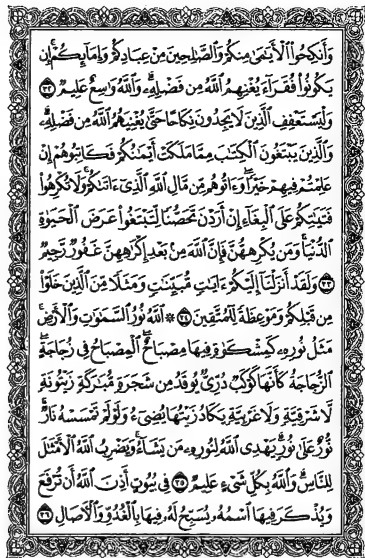 وَأَنكِحُوا۟ ٱلْأَيَٰمَىٰ مِنكُمْ وَٱلصَّٰلِحِينَ مِنْ عِبَادِكُمْ وَإِمَآئِكُمْ إِن
يَكُونُوا۟ فُقَرَآءَ يُغْنِهِمُ ٱللَّهُ مِن فَضْلِهِۦ وَٱللَّهُ وَٰسِعٌ عَلِيمٌ ٣٢
وَلْيَسْتَعْفِفِ ٱلَّذِينَ لَا يَجِدُونَ نِكَاحًا حَتَّىٰ يُغْنِيَهُمُ ٱللَّهُ مِن فَضْلِهِۦ
وَٱلَّذِينَ يَبْتَغُونَ ٱلْكِتَٰبَ مِمَّا مَلَكَتْ أَيْمَٰنُكُمْ فَكَاتِبُوهُمْ إِنْ
عَلِمْتُمْ فِيهِمْ خَيْرًا وَءَاتُوهُم مِّن مَّالِ ٱللَّهِ ٱلَّذِىٓ ءَاتَىٰكُمْ وَلَا تُكْرِهُوا۟
فَتَيَٰتِكُمْ عَلَى ٱلْبِغَآءِ إِنْ أَرَدْنَ تَحَصُّنًا لِّتَبْتَغُوا۟ عَرَضَ ٱلْحَيَوٰةِ
ٱلدُّنْيَا وَمَن يُكْرِههُّنَّ فَإِنَّ ٱللَّهَ مِنۢ بَعْدِ إِكْرَٰهِهِنَّ غَفُورٌ رَّحِيمٌ
٣٣ وَلَقَدْ أَنزَلْنَآ إِلَيْكُمْ ءَايَٰتٍ مُّبَيِّنَٰتٍ وَمَثَلًا مِّنَ ٱلَّذِينَ خَلَوْا۟
مِن قَبْلِكُمْ وَمَوْعِظَةً لِّلْمُتَّقِينَ ٣٤ ۞ ٱللَّهُ نُورُ ٱلسَّمَٰوَٰتِ وَٱلْأَرْضِ
مَثَلُ نُورِهِۦ كَمِشْكَوٰةٍ فِيهَا مِصْبَاحٌ ٱلْمِصْبَاحُ فِى زُجَاجَةٍ
ٱلزُّجَاجَةُ كَأَنَّهَا كَوْكَبٌ دُرِّىٌّ يُوقَدُ مِن شَجَرَةٍ مُّبَٰرَكَةٍ زَيْتُونَةٍ
لَّا شَرْقِيَّةٍ وَلَا غَرْبِيَّةٍ يَكَادُ زَيْتُهَا يُضِىٓءُ وَلَوْ لَمْ تَمْسَسْهُ نَارٌ
نُّورٌ عَلَىٰ نُورٍ يَهْدِى ٱللَّهُ لِنُورِهِۦ مَن يَشَآءُ وَيَضْرِبُ ٱللَّهُ ٱلْأَمْثَٰلَ
لِلنَّاسِ وَٱللَّهُ بِكُلِّ شَىْءٍ عَلِيمٌ ٣٥ فِى بُيُوتٍ أَذِنَ ٱللَّهُ أَن تُرْفَعَ
وَيُذْكَرَ فِيهَا ٱسْمُهُۥ يُسَبِّحُ لَهُۥ فِيهَا بِٱلْغُدُوِّ وَٱلْءَاصَالِ ٣٦